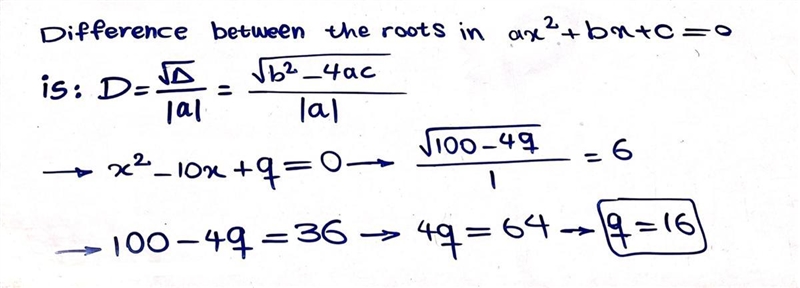 Difference between the roots in ax²+bx+c=0
is: D=√Δ/|a| = √b²-4ac/|a|
→ x²-10x+q=0 → √100-4q/1 = 6
→ 100-4q=36 → 4q=64 → q=16